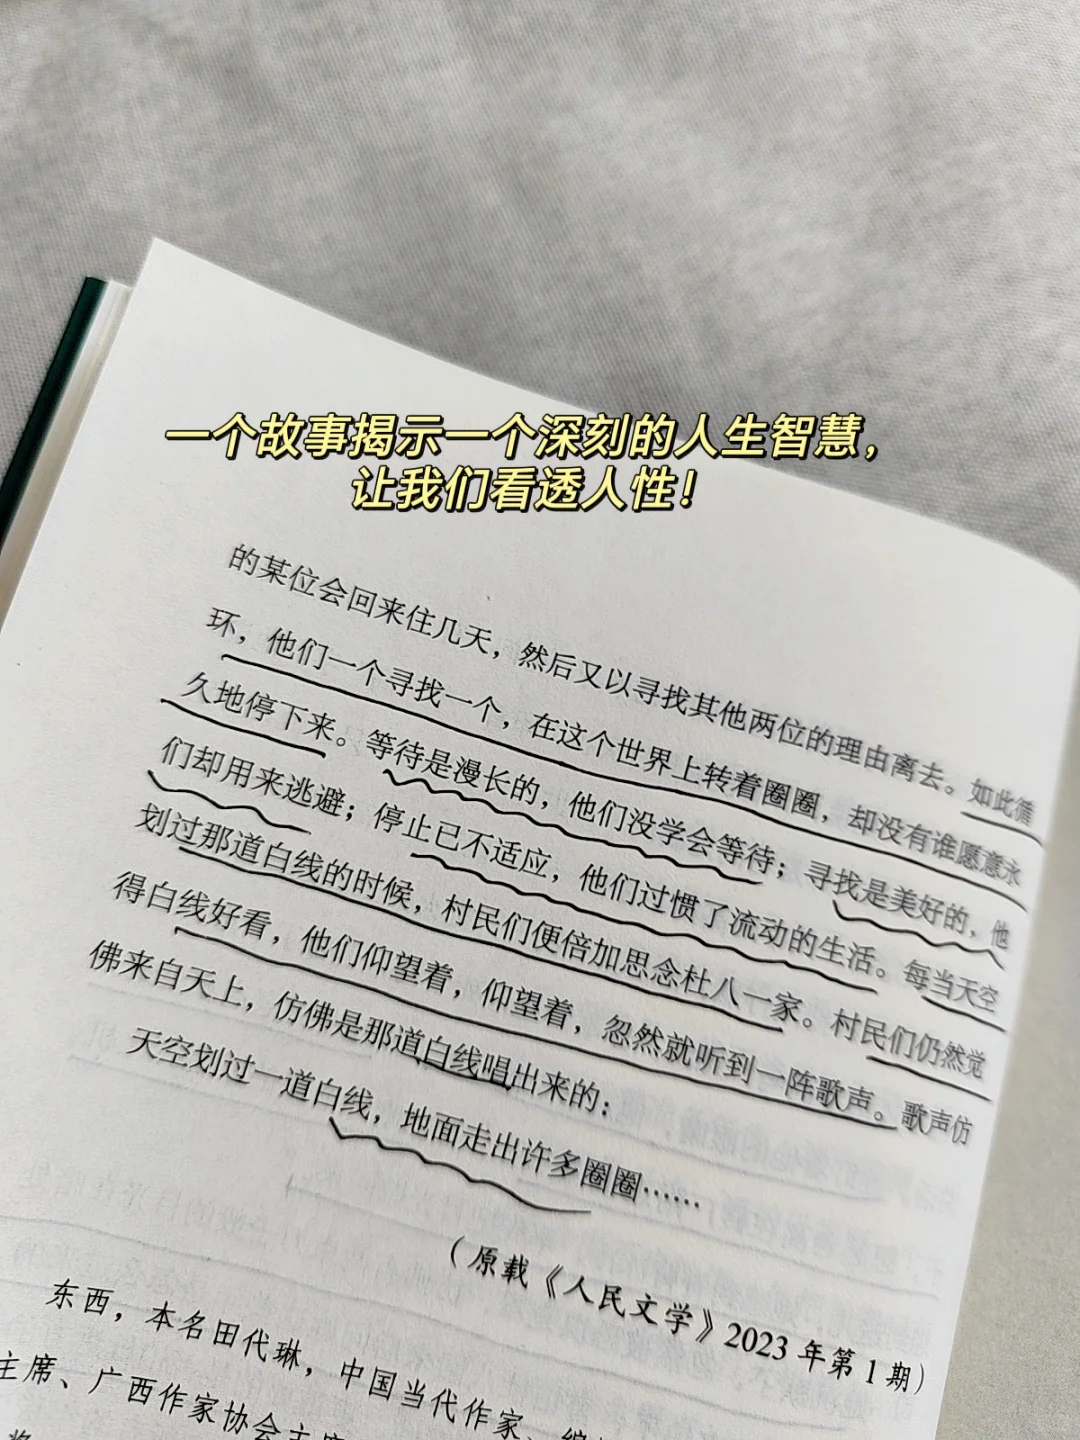 一个故事揭示一个深刻的人生智慧，
让我们看透人性！
的某位会回来住几天，然后又以寻找其他两位的理由离去。如此循
环，他们一个寻找一个，在这个世界上转着圈圈，却没有谁愿意永
久地停下来。等待是漫长的，他们没学会等待；寻找是美好的，他
们却用来逃避；停止已不适应，他们过惯了流动的生活。每当天空
划过那道白线的时候，村民们便倍加思念杜八一家。村民们仍然觉
得白线好看，他们仰望着，仰望着，忽然就听到一阵歌声。歌声仿
佛来自天上，仿佛是那道白线唱出来的：
天空划过一道白线，地面走出许多圈圈……
（原载《人民文学》2023年第1期）
东西，本名田代琳，中国当代作家、编
主席、广西作家协会主席